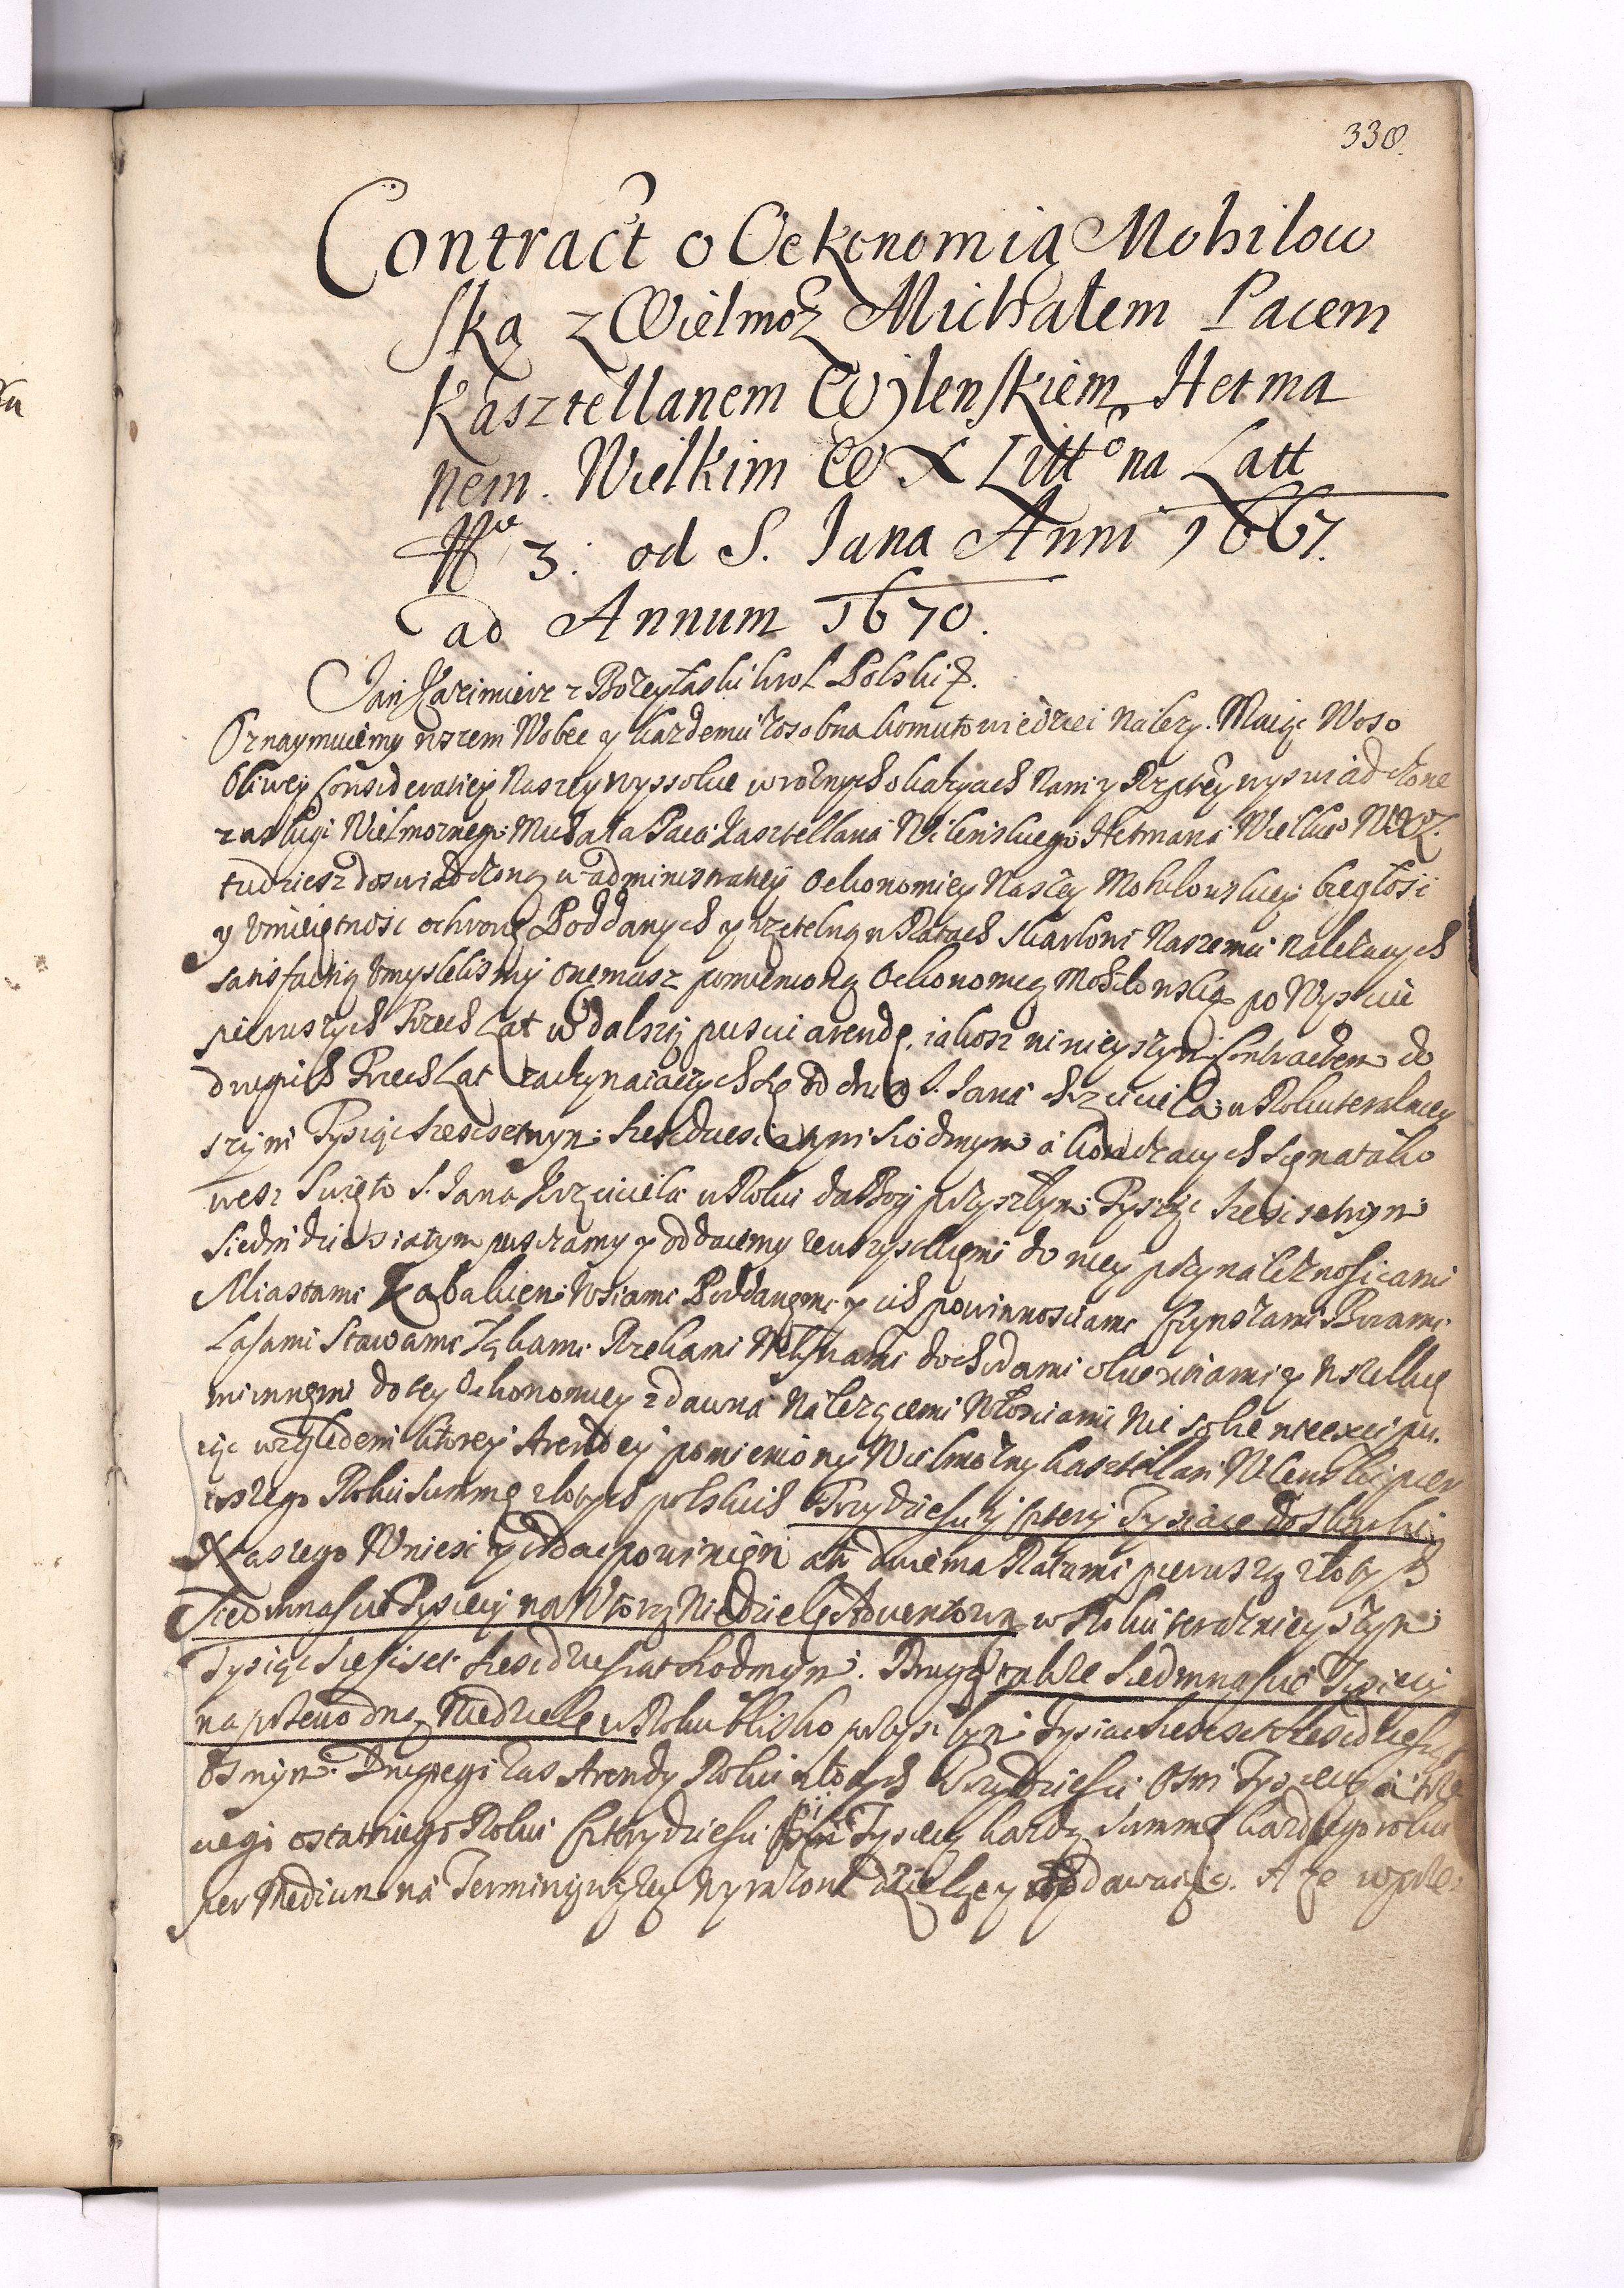 338.
Contract o Oekonomią Mohilow
ską z Wielmoż Michałem Pacem
Kasztellanem Wylenskiem Hetma
nem Wielkim W X Litto na Latt
3: od S. Jana Anni 1667.
ad Annum 1670.
Jan Kazimierz z Bozey łaski krol Polski
Oznaymuiemy wszem Wobec y kazdemu zosobna komu to wiedziec nalezy. Maiąc Woso
bliwey consideratiey Naszey wyssokie w roznych okazyach Nam y Rzptey wyswiadczone
zasługi Wielmoznego Michała Paca Kasztellana Wilenskiego Hetmana Wielkiego WXL
tudziesz doswiadczoną w administratiey Oekonomiey Naszey Mohilowskiey biegłosc
y Vmieiętnosc ochronę Poddanych y rzetelną w Ratach skarbowi Naszemu nalezących
satisfactią Vmyslelismy onemusz pomienioną Oekonomią Mohilowską po Wysciu
pierwszych Trzech Lat w dalszy puscic arendę, iakosz ninieyszym Contractem do
drugich Trzech Lat zaczynaiących się od dnia S. Jana Krzciciela w Roku terazniey
szym Tysiąc szescsetnym szescdziesiątym siodmym a konczących się na tako
wesz Swięto S. Jana Krzciciela w Roku da Bog przyszłym Tysiąc szescsetnym
siedmdziesiatym puszczamy y oddaiemy ze wszystkiemi do niey przynaleznosciami
Miastami Wsiami Poddanemi y ich powinnosciami Czynszami
Lasami Stawami Rzekami Młynami dochodami y wszelkie
mi innemi do tey Oekonomiey zdawna nalezącemi Włosciami nic sobie nie excipu
iąc względem ktorey Arendey pomieniony Wielmozny Kasztellan Wilenski pier
wszego Roku Summę złotych polskich Trzydziesci y cztery Tysiące do Skarbu
Naszego Wniesc y oddac powinien a to dwiema Ratami pierwszą złotych
Siedmnascie Tysięcy na Wtorą Niedzielę Adventową w Roku teraznieyszym
Tysiąc szescset szescdziesiat siodmym. Drugą także Siedmnascie Tysięcy
na przewodną Niedzielę w Roku blisko przyszłym Tysiac szescset szescdziesiąt
osmym. Drugiego zas Arendy Roku złotych Trzydziesci Osm Tysięcy a trze
ciego ostatniego Roku Czterydziesci Tysięcy kazdą Summę kazdego roku
per Medium na Terminy wyzey wyrazone dzieląc y oddawaiąc. A ze wprze